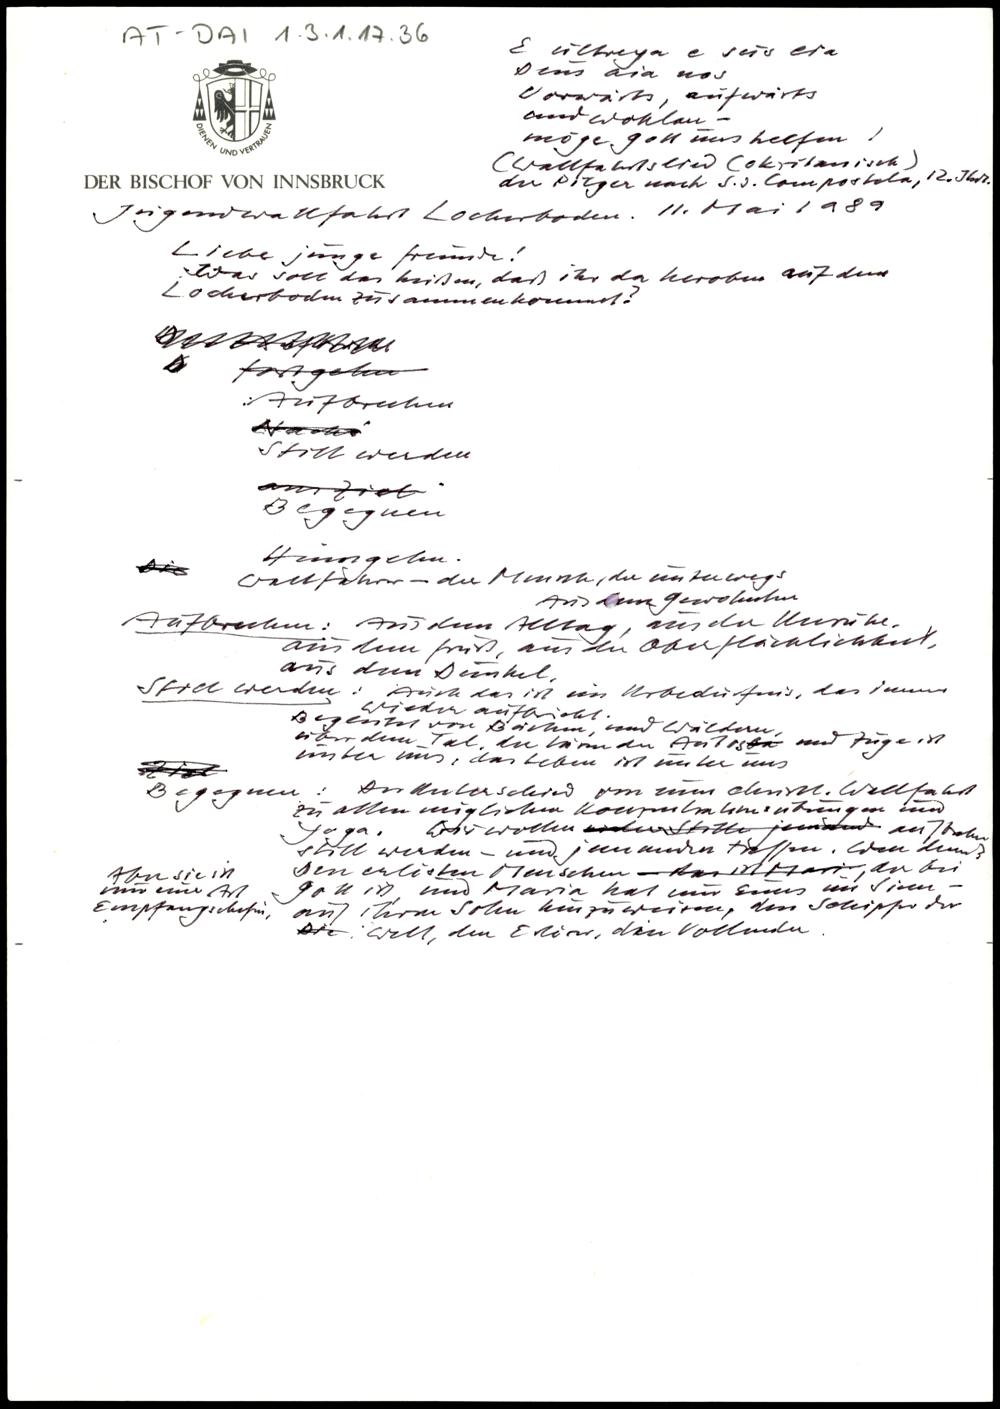 AT-DAI 1.3.1.17.36
E ultreya e sus eia
Deus aia nos
Vorwärts, aufwärts
und wohlan -
möge Gott uns helfen !
(Wallfahrtslied (okzitanisch)
der Pilger nach S.J. Compostela, 12. Jhdt.
DIENEN UND VERTRAUEN
DER BISCHOF VON INNSBRUCK
Jugendwallfahrt Locherboden. 11. Mai 1989
Liebe junge Freunde!
Was soll das heißen, daß ihr da heroben auf dem
Locherboden zusammenkommt?
fortgehn
: Aufbrechen
Still werden
am Ziel
Begegnen
Hinausgehn.
Die
Wallfahrer - der Mensch, der unterwegs
Aus dem Gewohnten
Aufbrechen: Aus dem Alltag, aus der Unruhe.
aus dem Frust, aus der Oberflächlichkeit,
aus dem Dunkel.
Still werden: Auch das ist ein Urbedürfnis, das immer
wieder aufbricht.
Begleitet von Bächen, und Wäldern,
über dem Tal, der Lärm der Autos und Züge ist
unter uns, das Leben ist unter uns
Ziel
Begegnen: Der Unterschied von einer christl. Wallfahrt
zu allen möglichen Konzentrationsübungen und
Yoga. Wir wollen in der Stille jemand aufbrechen
still werden - und jemanden treffen. Wen denn?
Den erlösten Menschen - das ist Mari, der bei
Gott ist, und Maria hat nur Eines im Sinn -
auf ihren Sohn hinzuweisen, den Schöpfer der
Die Welt, den Erlöser, den Vollender.
Aber sie ist
nur eine Art
Empfangschefin,